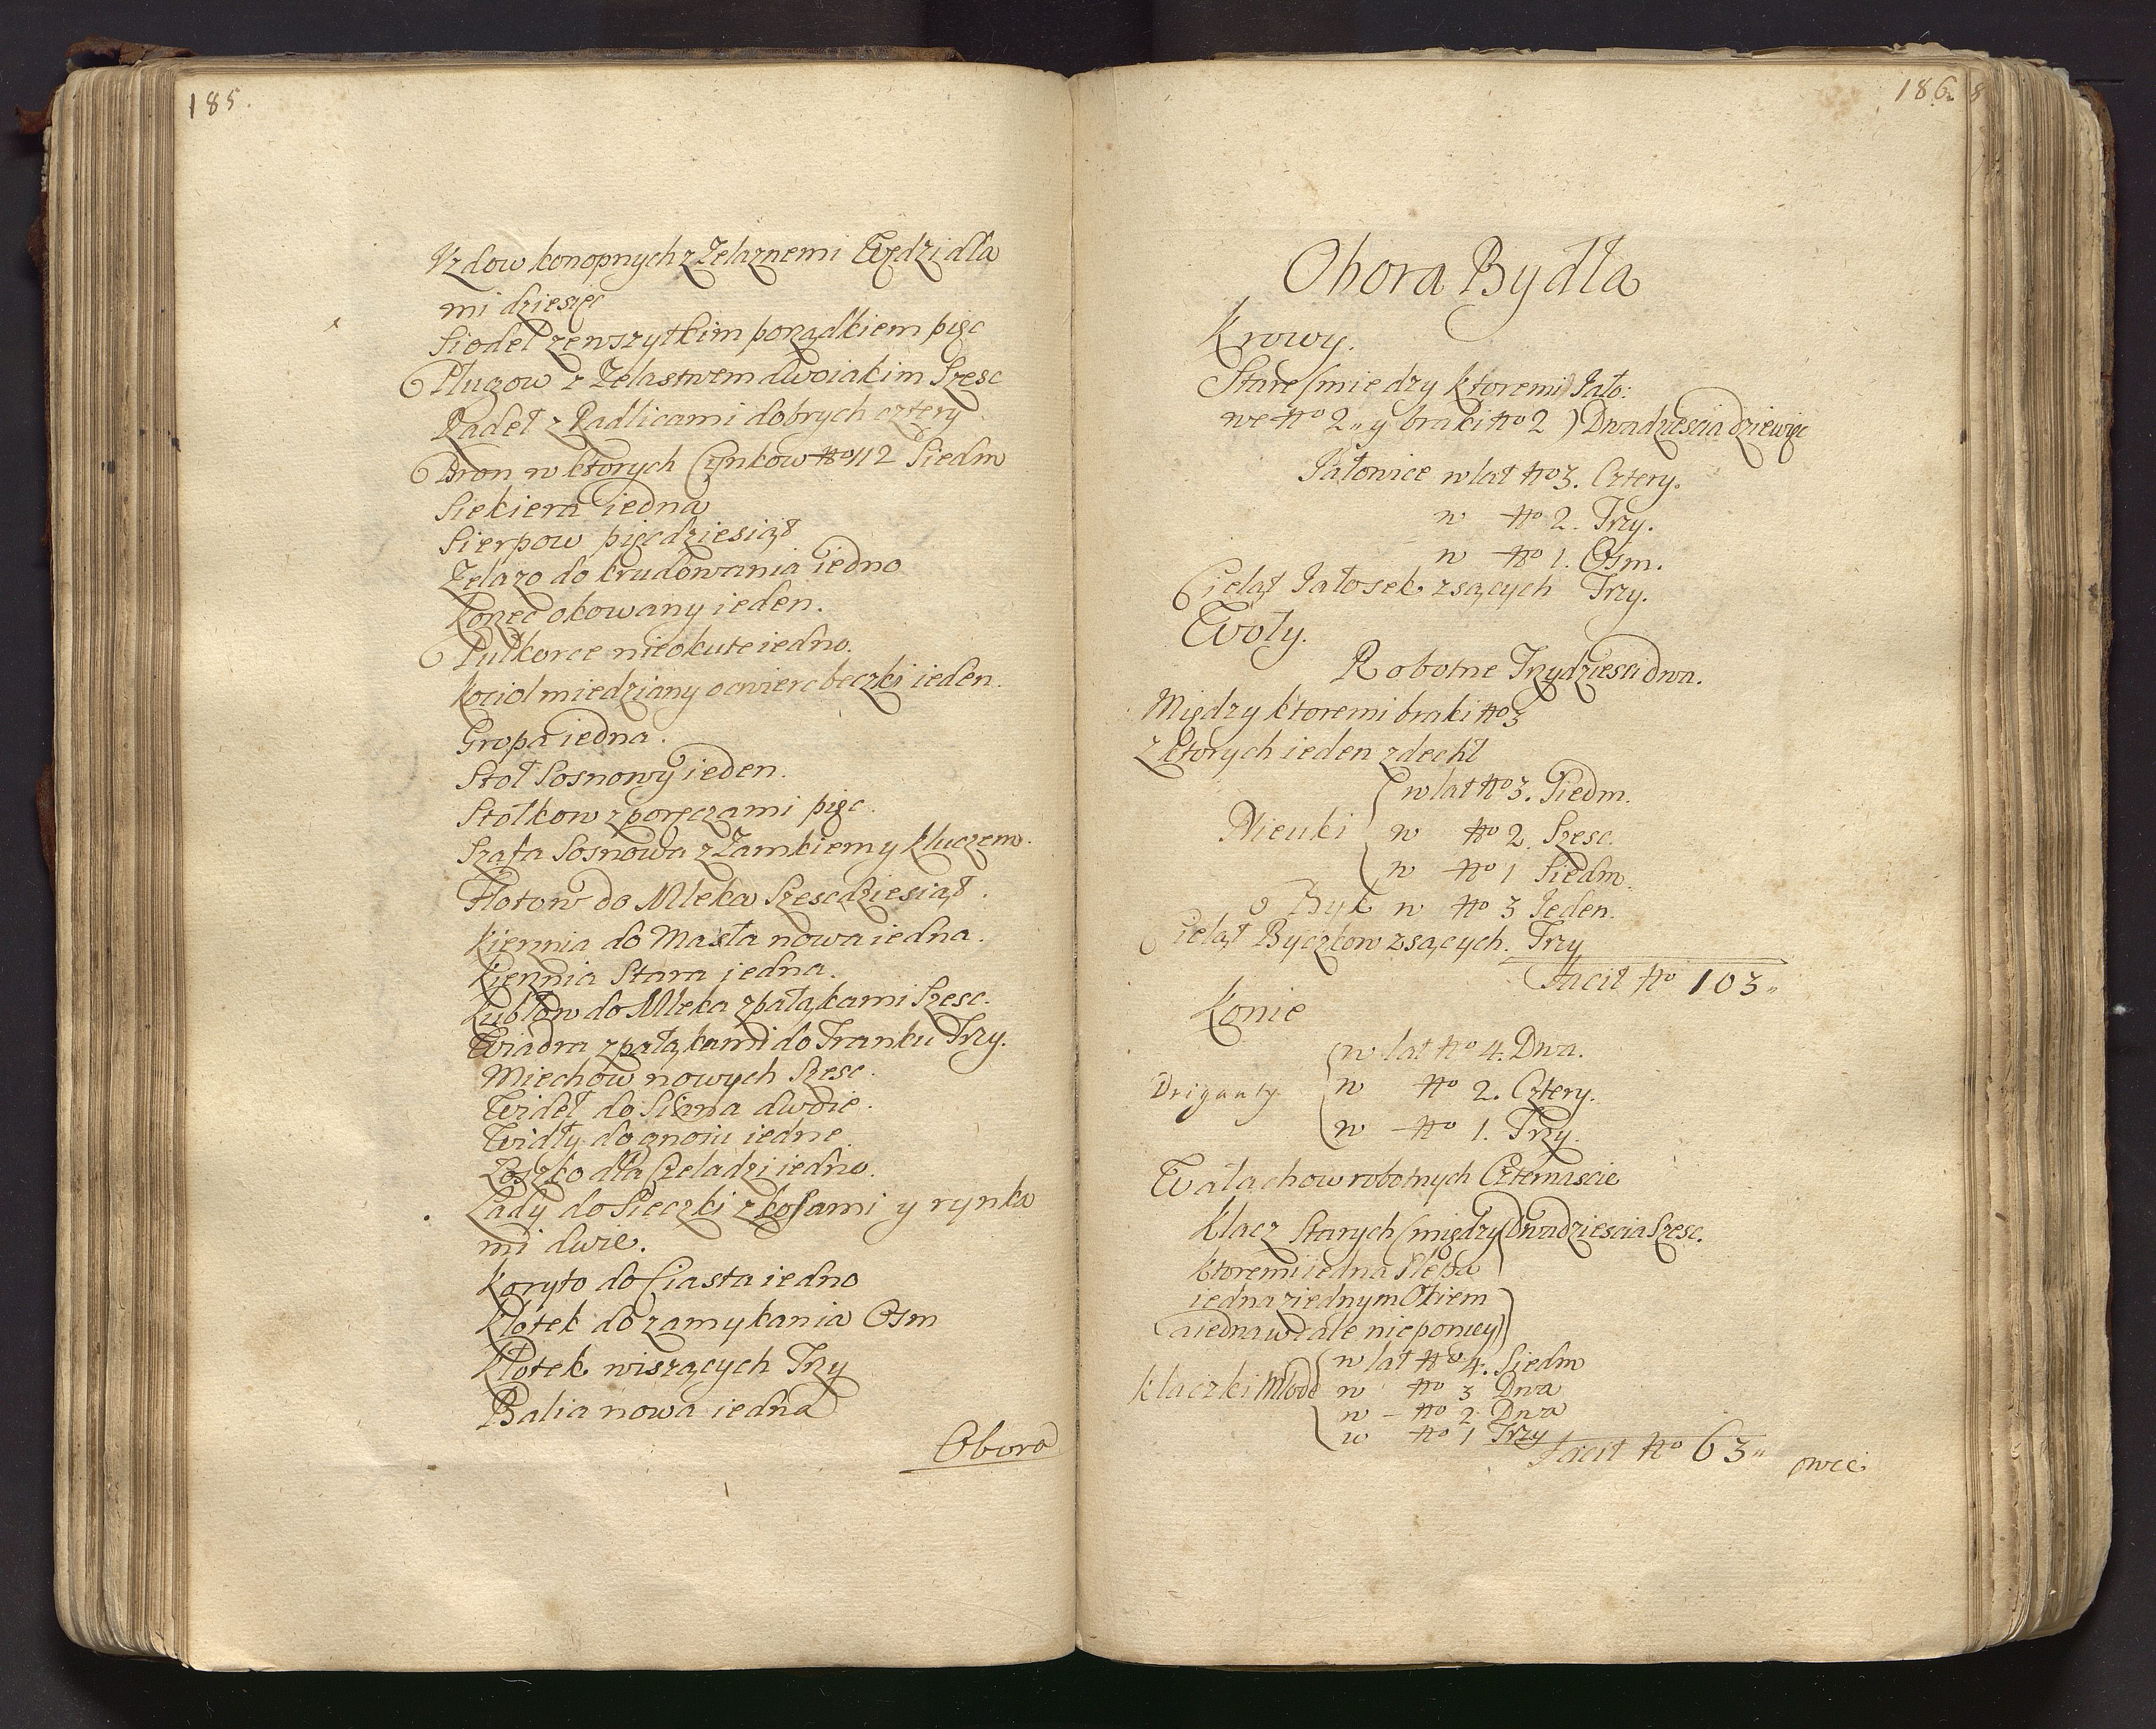 185.
Uzdow konopnych z Zelaznemi Wędzidła
mi dziesięc
Siodeł ze wszytkim porządkiem pięc
Pługow z Zelastwem dwoiakim Szesc
Radeł z Radlicami dobrych cztery
Bron w ktorych Cynkow No 112 Siedm
Siekiera iedna
Sierpow pięcdziesiąt
Zelazo do krudowania iedno
Korzec okowany ieden.
Pułkorce nieokute iedno.
Kociol miedziany o cwierc beczki ieden.
Gropa iedna.
Stoł Sosnowy ieden.
Stołkow z poręczami pięc.
Szafa Sosnowa z Zamkiem y kluczem.
Flotow do Mleka Szescdziesiąt.
Kiernia do Masła nowa iedna.
Kiernia Stara iedna.
Kubłow do Mleka z pałąkami Szesc.
Wiadra z pałąkami do Tranku Trzy.
Miechow nowych Szesc.
Wideł do Siana dwoie.
Widły do gnoiu iedne.
Łoszko dla Czeladzi iedno.
Lady do Sieczki z kosami y rynka
mi dwie.
Koryto do Ciasta iedno
Kłotek do zamykania Osm
Kłotek wiszących Trzy
Balia nowa iedna
Obora
186. 8
Obora Bydła
Krowy.
Stare (miedzy ktoremi Jało:
we No 2 „ y braki No 2) Dwadziescia dziewięc
Jałowice w lat No 3. Cztery.
w No 2. Trzy.
w No 1. Osm.
Cieląt Jałosek zsących Trzy.
Woły.
Robotne Trzydziesci dwa.
Między ktoremi braki No 3
Z ktorych ieden zdechł
w lat No 3. Siedm.
Nieuki w No 2. Szesc.
w No 1 Siedm.
Byk w No 3 Jeden.
Cieląt Byczkow zsących. Trzy
Facit No 103 „
Konie
w lat No 4. Dwa.
Driganty w No 2. Cztery.
w No 1. Trzy.
Wałachow robotnych Czternascie
Klacz Starych (między Dwadziescia Szesc.
ktoremi iedna Slepa
iedna z iednym Okiem
a iedna wcale nieponiey)
w lat No 4. Siedm
Klaczki Młode w No 3 Dwa
w – No 2. Dwa
w No 1 Trzy
Facit No 63 „
owce